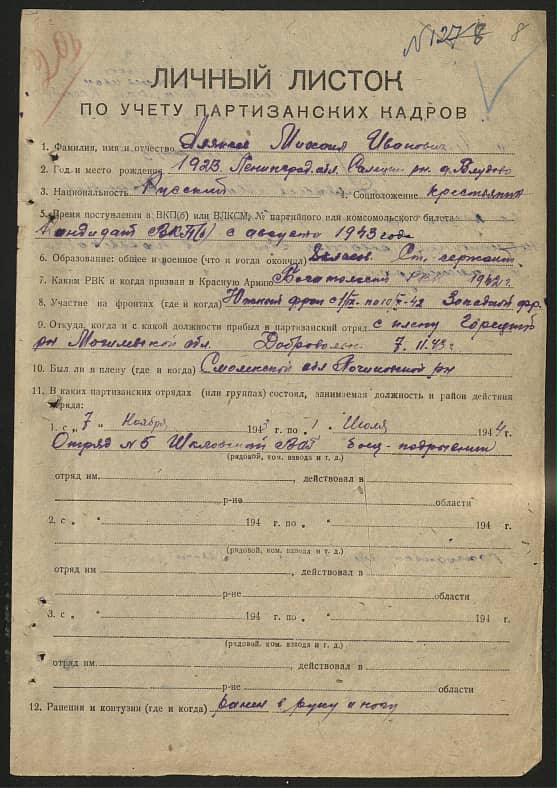 № 127 8 8
ЛИЧНЫЙ ЛИСТОК
ПО УЧЕТУ ПАРТИЗАНСКИХ КАДРОВ
1. Фамилия, имя и отчество Михаил Иванович
2. Год и место рождения 1923 Ленинград. обл. рн. д.
3. Национальность Русский 4. Соцположение крестьянин
5. Время поступления в ВКП(б) или ВЛКСМ, № партийного или комсомольского билета
Кандидат ВКП(б) с августа 1943 года
6. Образование: общее и военное (что и когда окончил) классов Ст. сержант
7. Каким РВК и когда призван в Красную Армию 1942 г.
8. Участие на фронтах (где и когда) Южный фрон с по 42 Западной фр.
9. Откуда, когда и с какой должности прибыл в партизанский отряд с плену
рн Могилевской обл. Добровольно 7.11.43 г
10. Был ли в плену (где и когда) Смоленской обл Починковский рн
11. В каких партизанских отрядах (или группах) состоял, занимаемая должность и район действия
отряда:
1. с „ 7 „ Ноября 1943 г. по „ 1 „ Июля 1944 г.
Отряд № 5 Шкловской боец-подрывник
(рядовой, ком. взвода и т. д.)
отряд им. , действовал в
р-не области
2. с „ „ 194 г. по „ „ 194 г.
(рядовой, ком. взвода и т. д.)
отряд им. , действовал в
р-не области
3. с „ „ 194 г. по „ „ 194 г.
(рядовой, ком. взвода и т. д.)
отряд им. , действовал в
р-не области
12. Ранения и контузии (где и когда) ранен в руку и ногу